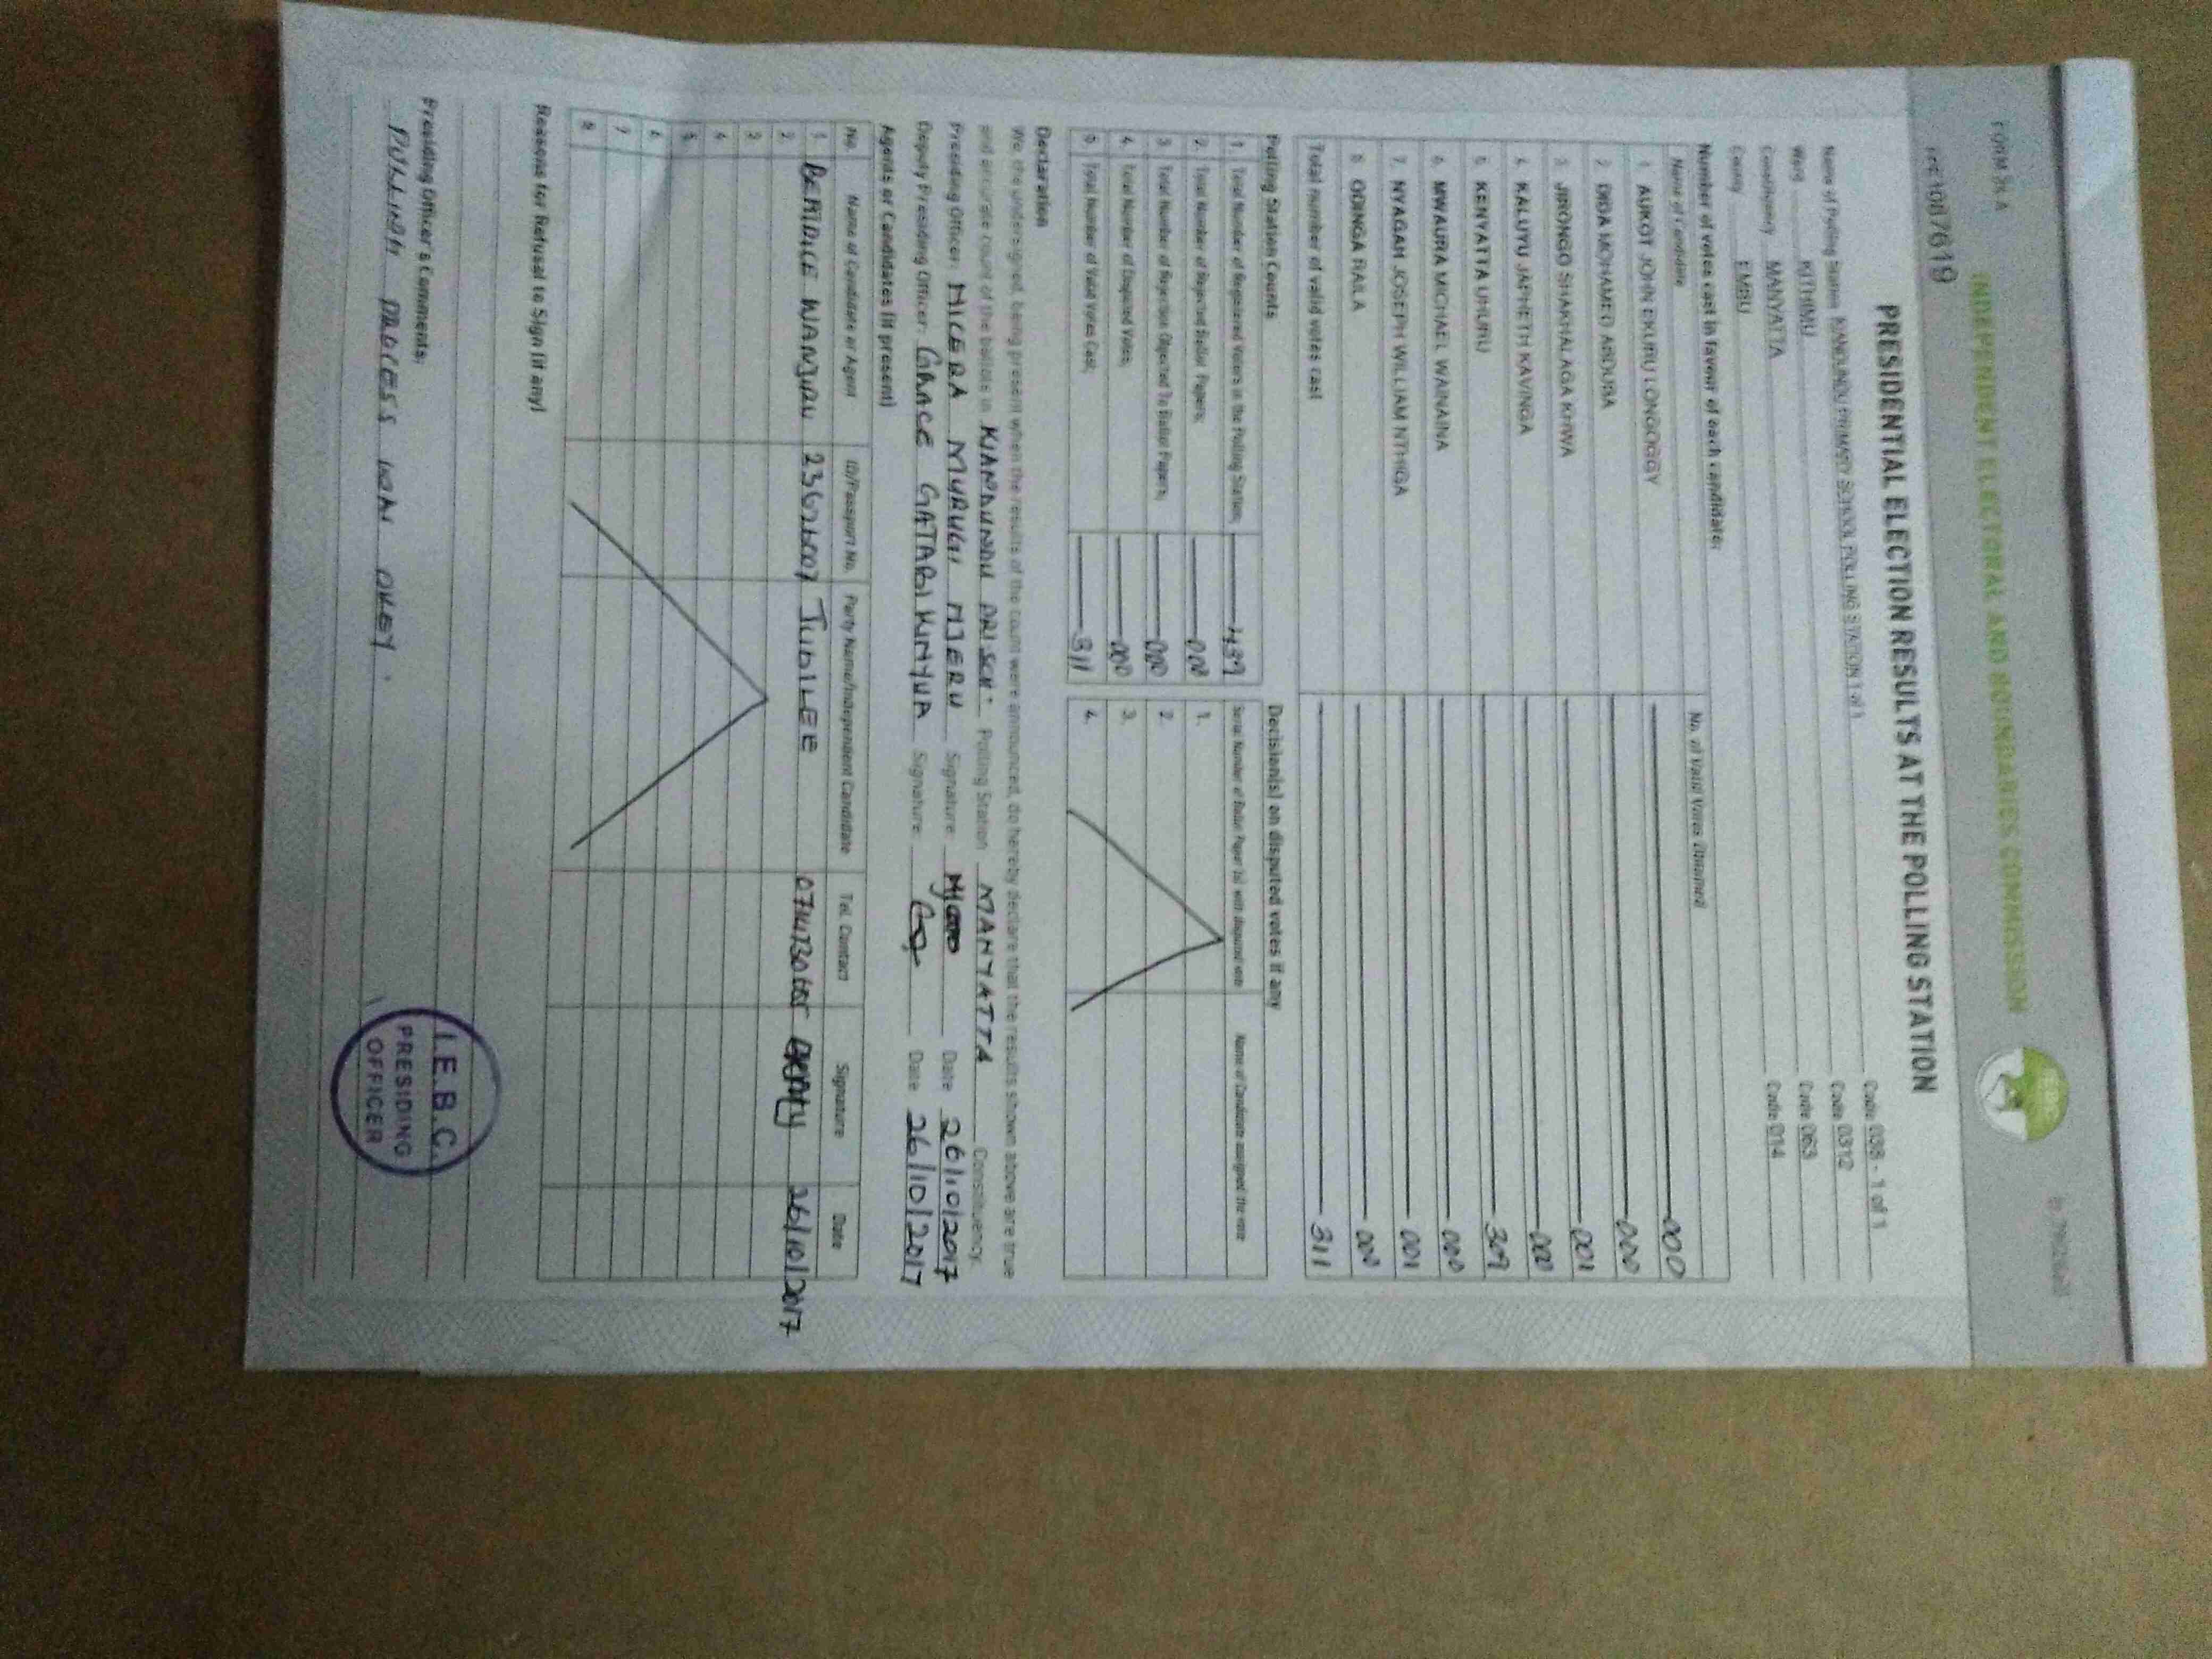 FORM 34A
INDEPENDENT ELECTORAL AND BOUNDARIES COMMISSION
1087619
PRESIDENTIAL ELECTION RESULTS AT THE POLLING STATION
Name of Polling Station KIANDUNDU PRIMARY SCHOOL POLLING STATION 1 of 1 Code 038 - 1 of 1
Ward KITHIMU Code 0312
Constituency MANYATTA Code 063
County EMBU Code 014
Number of votes cast in favour of each candidate:
Name of Candidate No. of Valid Votes Obtained
1. AUKOT JOHN EKURU LONGOGGY 000
2. DIDA MOHAMED ABDUBA 000
3. JIRONGO SHAKHALAGA KHWA 001
4. KALUYU JAPHETH KAVINGA 000
5. KENYATTA UHURU 309
6. MWAURA MICHAEL WAINAINA 000
7. NYAGAH JOSEPH WILLIAM NTHIGA 001
8. ODINGA RAILA 000
Total number of valid votes cast 311
Polling Station Counts
1. Total Number of Registered Voters in the Polling Station; 439
2. Total Number of Rejected Ballot Papers; 000
3. Total Number of Rejection Objected To Ballot Papers; 000
4. Total Number of Disputed Votes; 000
5. Total Number of Valid Votes Cast; 311
Decision(s) on disputed votes if any
Serial Number of Ballot Paper (s) with disputed vote Name of Candidate assigned the vote
1.
2.
3.
4.
Declaration
We the undersigned, being present when the results of the count were announced, do hereby declare that the results shown above are true
and accurate count of the ballots in KIANDUNDU PRI SCH. Polling Station MANYATTA Constituency.
Presiding Officer: NICERA MURUGI NJERU Signature Date 26/10/2017
Deputy Presiding Officer: GRACE GATABI KINYUA Signature Date 26/10/2017
Agents or Candidates (if present)
No. Name of Candidate or Agent ID/Passport No. Party Name/Independent Candidate Tel. Contact Signature Date
1. BERIDICE WANJIRU JUBILEE 26/10/2017
2.
3
4
5
6
7
8
Reasons for Refusal to Sign (if any)
Presiding Officer's Comments;
POLLING PROCESS WAS OKEY.
I.E.B.C.
PRESIDING
OFFICER